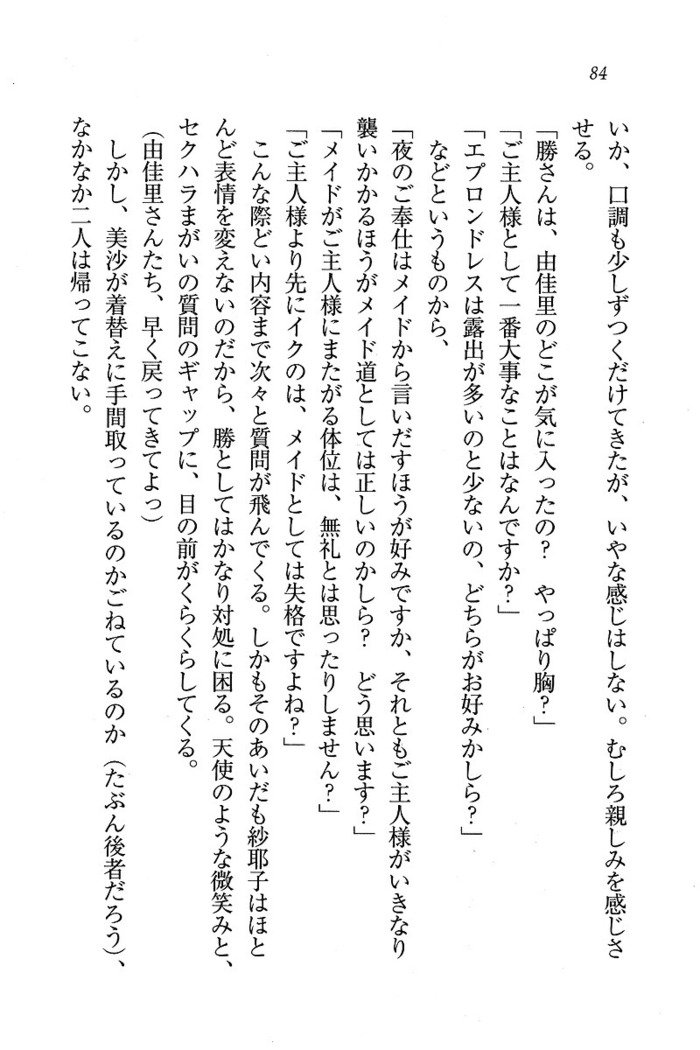 84
いか、口調も少しずつくだけてきたが、いやな感じはしない。むしろ親しみを感じさ
せる。
「勝さんは、由佳里のどこが気に入ったの？　やっぱり胸？」
「ご主人様として一番大事なことはなんですか？」
「エプロンドレスは露出が多いのと少ないの、どちらがお好みかしら？」
などというものから、
「夜のご奉仕はメイドから言いだすほうが好みですか、それともご主人様がいきなり
襲いかかるほうがメイド道としては正しいのかしら？　どう思います？」
「メイドがご主人様にまたがる体位は、無礼とは思ったりしません？」
「ご主人様より先にイクのは、メイドとしては失格ですよね？」
こんな際どい内容まで次々と質問が飛んでくる。しかもそのあいだも紗耶子はほと
んど表情を変えないのだから、勝としてはかなり対処に困る。天使のような微笑みと、
セクハラまがいの質問のギャップに、目の前がくらくらしてくる。
（由佳里さんたち、早く戻ってきてよっ）
しかし、美沙が着替えに手間取っているのかごねているのか（たぶん後者だろう）、
なかなか二人は帰ってこない。